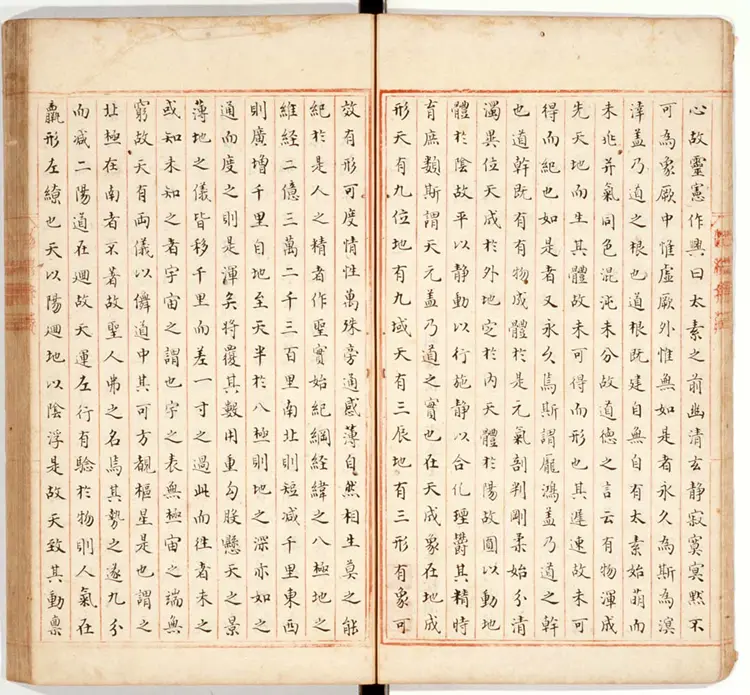 心故靈憲作興曰太素之前幽清玄静寂寞冥默不
可為象厥中惟虛厥外惟無如是者永久為斯為溟
涬盖乃道之根也道根既建自無自有太素始萠而
未兆并氣同色混沌未分故道德之言云有物渾成
先天地而生其體故未可得而形也其遲速故未可
得而紀也如是者又永久焉斯謂龎鴻盖乃道之幹
也道幹既有有物成體於是元氣剖判剛柔始分清
濁異位天成於外地定於內天體於陽故圓以動地
體於陰故平以静動以行施静以合化堙欝其精時
育庶類斯謂天元盖乃道之實也在天成象在地成
形天有九位地有九域天有三辰地有三形有象可
效有形可度情性萬殊旁通感薄自然相生莫之能
紀於是人之精者作聖實始紀綱經緯之八極地之
維経二億三萬二千三百里南北則短减千里東西
則廣增千里自地至天半於八極則地之深亦如之
通而度之則是渾矣將覆其數用重勾股懸天之景
薄地之儀皆移千里而差一寸之過此而徃者未之
或知未知之者宇宙之謂也宇之表無極宙之端無
窮故天有两儀以儛道中其可方覩樞星是也謂之
北極在南者不著故聖人弗之名焉其勢之遂九分
而减二陽道在廻故天運左行有驗於物則人氣在
羸形左繚也天以陽廻地以陰浮是故天致其動禀